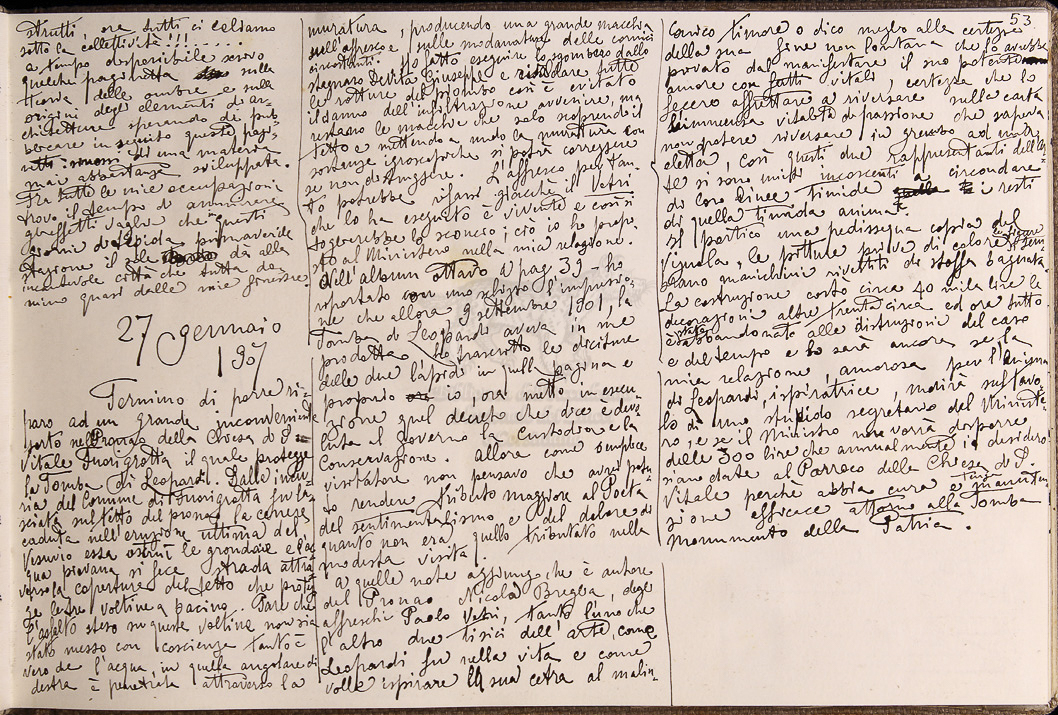 strutti, ora tutti ci celiamo
sotto la collettività!!! .....
a tempo disponibile scrivo
qualche paginetta sulla
teoria delle ombre e sulla
origini degli elementi di ar-
chitettura sperando di pub
blicare in seguito queste pagi-
di una materia
mai abbastanza sviluppata.
Tra tutte le mie occupazioni
trovo il tempo di ammirare
gli effetti vaghi che in questi
giorni di tepida primaverile
stagione il sole dà alla
incantevole città che tutta do-
mino quasi dalle mie finestre.
27 gennaio
1907
Termino di porre ri-
paro ad un grande inconveniente
sorto nel Pronao della Chiesa di S.
Vitale Fuorigrotta il quale protegge
la Tomba di Leopardi. Dalla incu-
ria del Comune di Fuorigrotta fu la-
sciata sul tetto del pronao la cenere
caduta nell'eruzione ultima del
Vesuvio essa ostruì le grondaie e l'ac
qua piovana si fece strada attra
verso la copertura del tetto che proteg
ge le tre voltine a bacino. Pare che
l'asfalto steso su queste voltine non sia
stato messo con coscienza tanto è
vero che l'acqua, in quella angolare di
destra è penetrata attraverso la
muratura, producendo una grande macchia
sull'affresco e sulle modanature delle cornici
circostanti. Ho fatto eseguire lo sgombero dallo
stagnaro De Vita Giuseppe e risaldare tutte
le rotture del piombo così è evitato
il danno dell'infiltrazione avvenire, ma
restano le macchie che solo scoprendo il
tetto e mettendo a nudo la muratura con
sostanze igroscopiche si potrà correggere
se non distruggere. L'affresco per tan-
to potrebbe rifarsi giacché il Vetri
che lo ha eseguito è vivente e così si
toglierebbe lo sconcio; ciò io ho propo-
sto al Ministero nella mia relazione.
Nell'album ottavo a pag 39 - ho
riportato con uno schizzo l'impressio-
ne che allora 9 settembre 1901, la
Tomba di Leopardi aveva in me
prodotta - ho trascritto le diciture
delle due lapidi in quella pagina e
proprio io ora metto in esecu-
zione quel decreto che dice è devo-
luta al governo la custodia e la
conservazione. Allora come semplice
visitatore non pensavo che avrei potu
to rendere tributo maggiore al Poeta
del sentimentalismo e del dolore di
quanto non era quello tributato nella
modesta visita.
A quelle note aggiungo, che è autore
del Pronao Nicola Breglia, degli
affreschi Paolo Vetri, tanto l'uno che
l'altro due tisici dell'arte, come
Leopardi fu nella vita e come
volle ispirare la sua cetra al malin-
53
conico timore o dico meglio alla certezza
della sua fine non lontana che lo avrebbe
privato dal manifestare il suo potente
amore con fatti vitali, certezza che lo
fecero affrettare a riversare sulla carta
l'immensa vitalità di passione che sapeva
non potere riversare in grembo ad
eletta, così questi due rappresentanti dell'Ar
te si sono misti incoscienti a circondare
di loro linee timide i resti
di quella timida anima.
Il portico una pedissequa copia del
Vignola, le pitture prive di colore
rano manichini rivestiti di stoffa bagnata.
La costruzione costò circa 40 mila lire le
decorazioni altre trenta circa ed ora tutto
è stato abbandonato alle distruzioni del caso
e del tempo e lo sarà ancora se la
mia relazione, amorosa per l'anima
di Leopardi, ispiratrice, morirà sul tavo-
lo di uno stupido segretario del Ministe-
ro, e se il Ministro non vorrà disporre
delle 300 lire che annualmente io desidero
siano date al Parroco della Chiesa di S.
Vitale perché abbia cura e manuten
zione efficace attorno alla Tomba
Monumento della Patria.